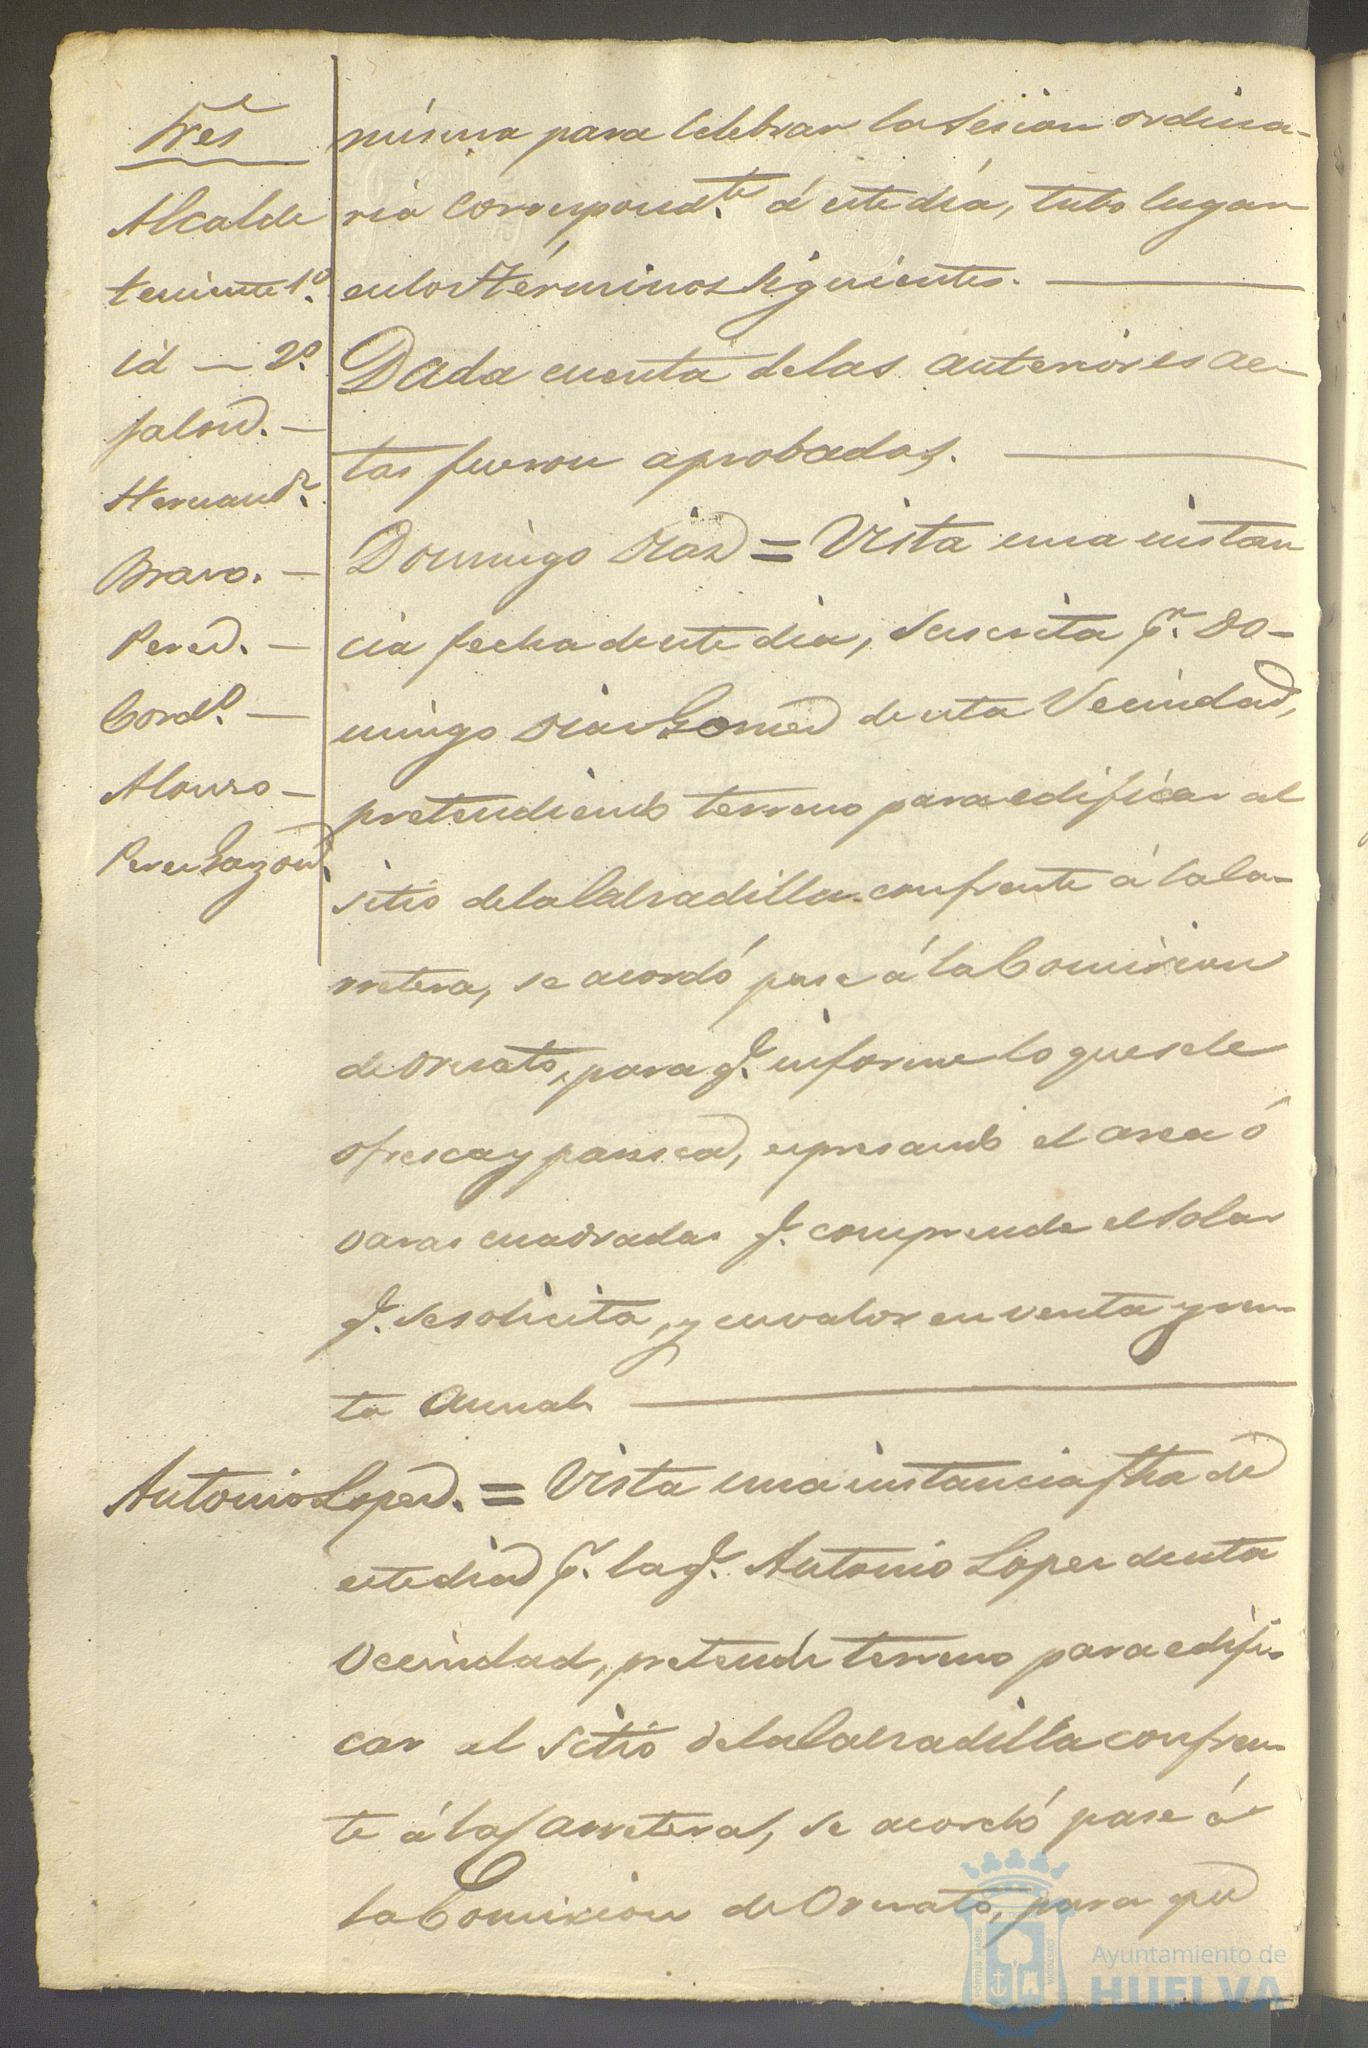 Sres
Alcalde
teniente 1º.
id — 2º.
Jalon. —
Hernandz.
Bravo. —
Perez. —
Cordo. —
Alonso —
Perez Garzon.
misma para celebrar la Sesion ordina-
ria correspondte. á este dia, tubo lugar
en los términos Siguientes. —
Dada cuenta de las anteriores ac-
tas fueron aprobadas. —
Domingo Diaz = Vista una instan
cia fecha de este dia, suscrita pr. Do-
mingo Diaz Gomez de esta Vecindad,
pretendiendo terreno para edificar al
sitio de la Calsadilla con frente á la Ca-
rretera, se acordó pase á la Comision
de Ornato, para q. informe lo que se le
ofresca y paresca, espresando el area ó
varas cuadradas q. comprende el Solar
q. se solicita, y su valor en venta y ren-
ta anual. —
Antonio Lopez. = Vista una instancia fha de
este dia pr. la q. Antonio Lopez de esta
Vecindad, pretende terreno para edifi-
car al Sitio de la Calsadilla con fren-
te á la Carretera, se acordó pase á
la Comision de Ornato, para que
Ayuntamiento de
HUELVA